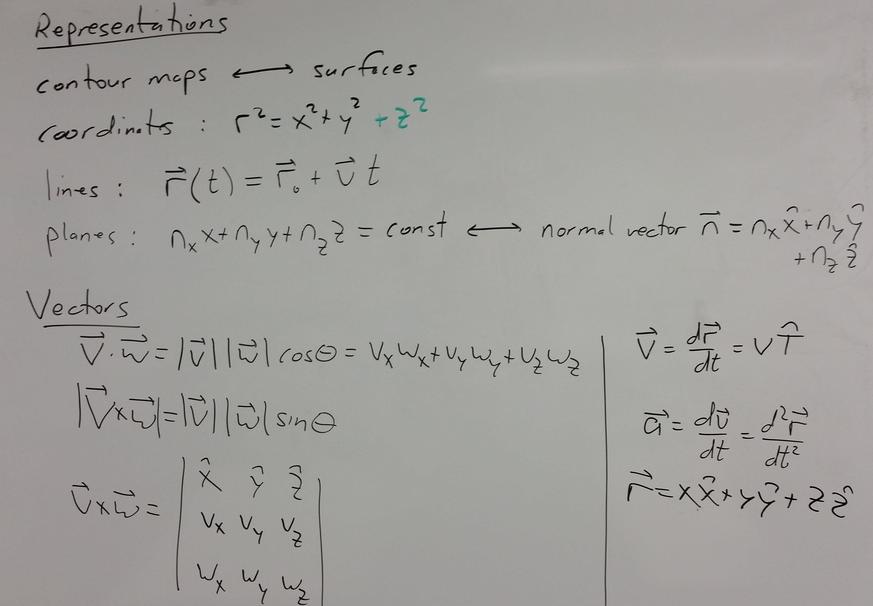 Representations
contour maps ⟷ surfaces
coordinates : r² = x² + y² + z²
lines : r⃗(t) = r⃗₀ + v⃗ t
planes : nₓx + n_y y + n_z z = const ⟷ normal vector n⃗ = nₓx̂ + n_y ŷ
+ n_z ẑ
Vectors
v⃗·w⃗ = |v⃗| |w⃗| cosθ = vₓwₓ + v_y w_y + v_z w_z
|v⃗×w⃗| = |v⃗| |w⃗| sinθ
v⃗×w⃗ = | x̂ ŷ ẑ |
| vₓ v_y v_z |
| wₓ w_y w_z |
v⃗ = dr⃗/dt = v T̂
a⃗ = dv⃗/dt = d²r⃗/dt²
r⃗ = x x̂ + y ŷ + z ẑ